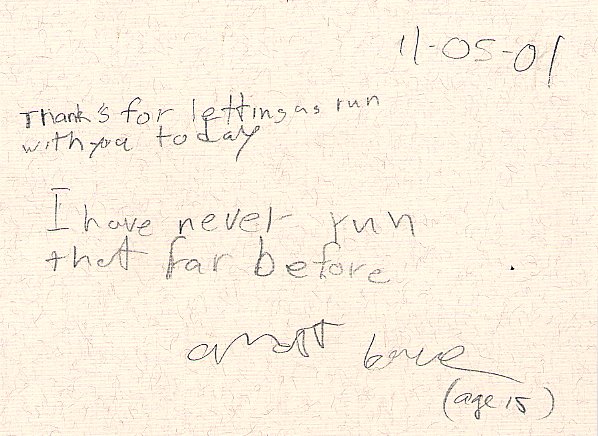 11-05-01
Thank's for letting us run
with you today
I have never run
that far before
(age 15)